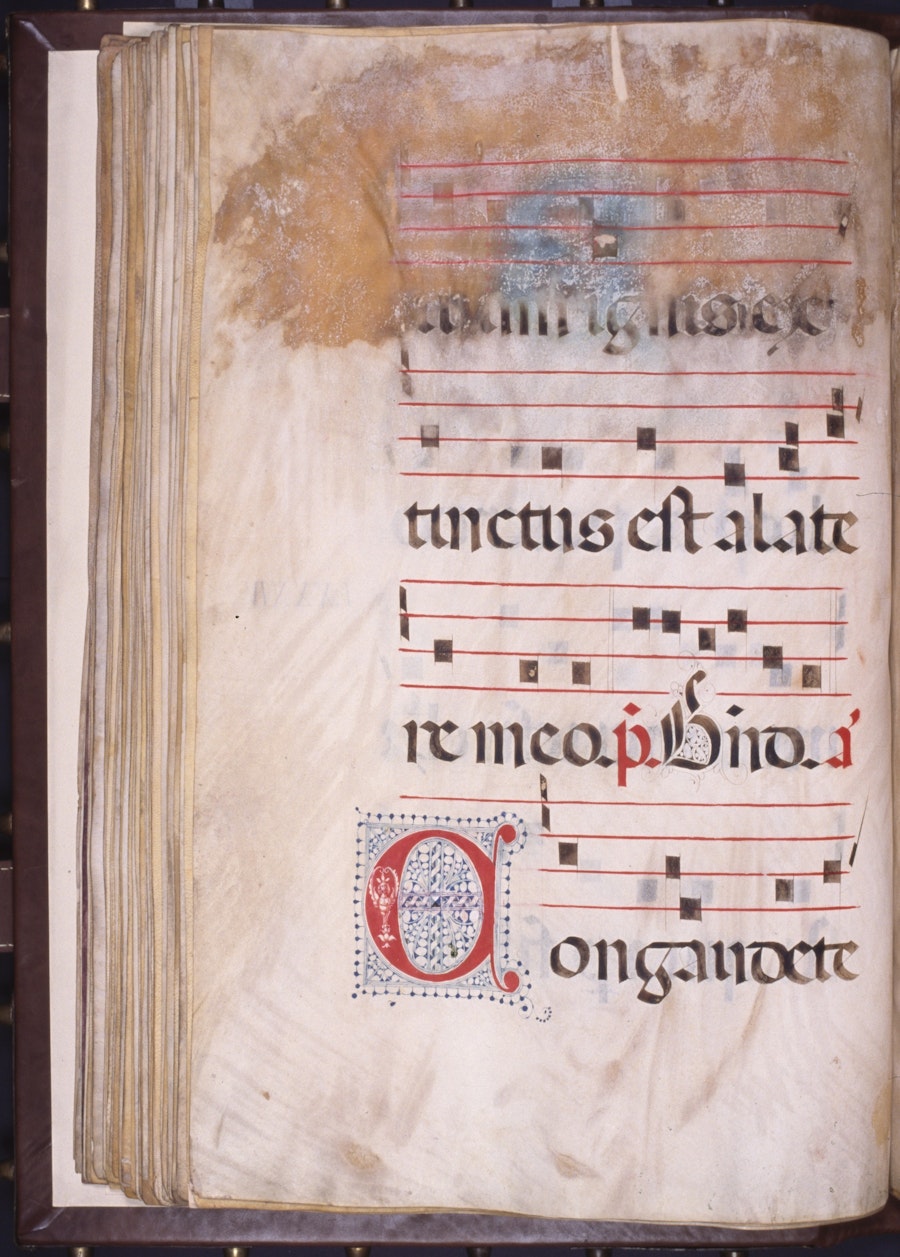 tuum ignis ex
tinctus est a late
re meo. p̄. Bn̄d. a̍
Congaudete